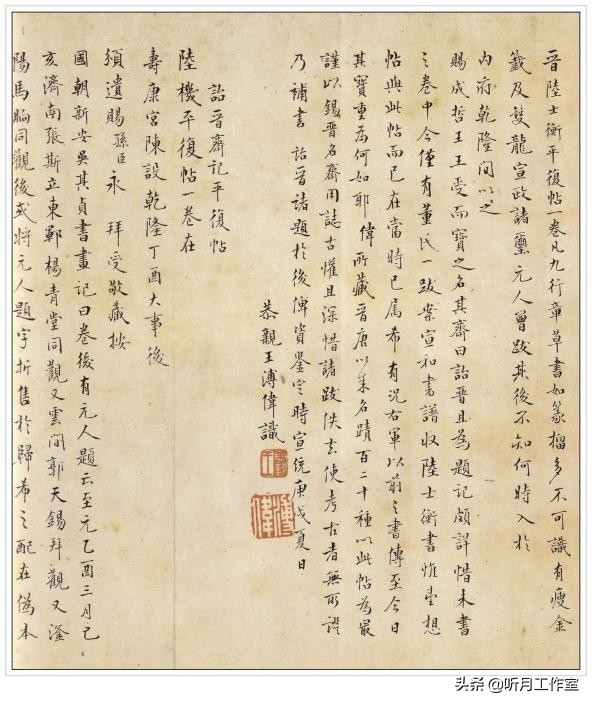 晉陸士衡平復帖一卷凡九行章草書如篆籀多不可識有瘦金
籤及雙龍宣政諸璽元人曾跋其後不知何時入於
內府乾隆間以之
賜成哲王王受而寶之名其齋曰詒晉且為題記頗詳惜未書
之卷中今僅有董氏一跋案宣和書譜收陸士衡書惟望想
帖與此帖而已在當時已屬希有況右軍以前之書傳至今日
其寶重為何如耶偉所藏晉唐以來名蹟百二十種以此帖為最
謹以錫晉名齋用誌古懽且深惜諸跋佚去使考古者無所證
乃補書詒晉諸題於後俾資鑒定時宣統庚戌夏日
恭親王溥偉識
溥偉
詒晉齋記平復帖
陸機平復帖一卷在
壽康宮陳設乾隆丁酉大事後
頒遺賜孫臣永 拜受敬藏按
國朝新安吳其貞書畫記曰卷後有元人題云至元乙酉三月己
亥濟南張斯立東鄆楊青堂同觀又雲間郭天錫拜觀又滏
陽馬昫同觀後或將元人題字折售於歸希之配在偽本
头条 @听月工作室